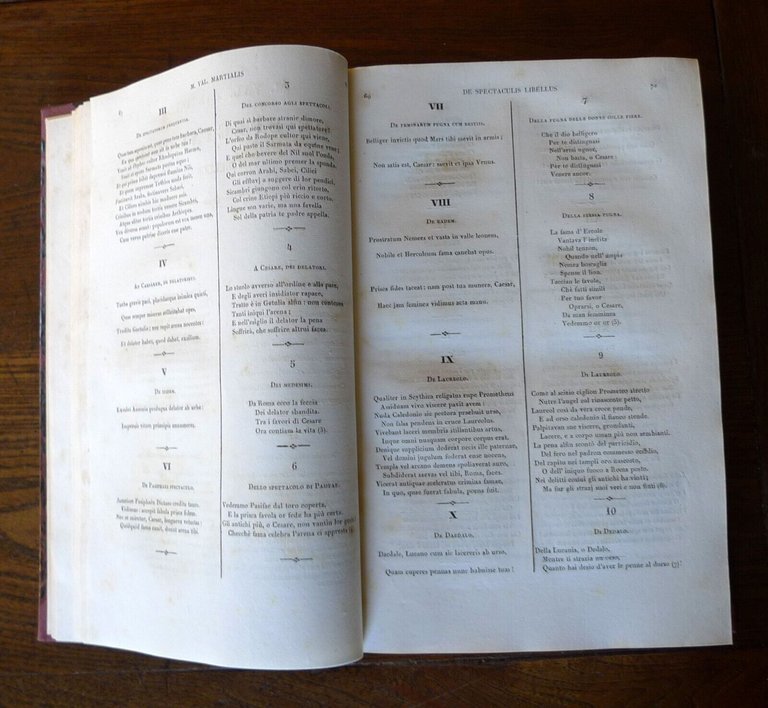 67
M. VAL. MARTIALIS
III
De spectatorum
Quae tam seposita est, quae gens tam barbara, Caesar,
Ex qua spectator non sit in urbe tua?
Venit ab Orpheo cultor Rhodopeius Haemo,
Venit et epoto Sarmata pastus equo;
Et qui prima bibit deprensi flumina Nili,
Et quem supremae Tethyos unda ferit.
Festinavit Arabs, festinavere Sabaei,
Et Cilices nimbis hic maduere suis.
Crinibus in nodum tortis venere Sicambri,
Atque aliter tortis crinibus Aethiopes.
Vox diversa sonat: populorum est vox tamen una,
Cum verus patriae diceris esse pater.
IV
Ad Caesarem, de delatoribus
Turba gravis paci, placidaeque inimica quieti,
Quae semper miseras sollicitabat opes,
Tradita Getulis; nec cepit arena nocentes:
Et delator habet, quod dabat, exsilium.
V
De iisdem
Exsulat Ausonia profugus delator ab urbe:
Impensis vitam principis annumeres.
VI
De Pasiphaes spectaculo.
Iunctam Pasiphaen Dictaeo credite tauro.
Vidimus: accepit fabula prisca fidem.
Nec se miretur, Caesar, longaeva vetustas:
Quidquid fama canit, donat arena tibi.
3
Del concorso agli spettacoli
Di quai si barbare straniе dimore,
Cesar, non trevasi qui spettatore?
L'orfeo da Rodope cultor qui viene,
Qui pasto il Sarmata da equine vene;
E quel che bevere del Nil suol l'onda,
O del mar ultimo premer la sponda.
Qui corron Arabi, Sabei, Cilici
Gli estivi a suggere di lor pendici.
Sicambri giungono col crin ritorto,
Col crine Etiopi più riccio e corto.
Lingue son varie, ma una favella
Sol della patria te padre appella.
4
A Cesare, dei delatori.
Lo stuolo avverso all'ordine e alla pace,
E degli averi insidiator rapace,
Tratto è in Getulia alfin: non contenea
Tanti iniqui l'arena;
E nell'esiglio il delator la pena
Soffrirà, che soffrire altrui facea.
5
Dei medesimi.
Da Roma ecco la feccia
Dei delator sbandita.
Tra i favori di Cesare
Ora contiam la vita (5).
6
Dello spettacolo di Pasifae.
Vedemmo Pasifae dal toro coperta,
E la prisca favola or fede ha più certa.
Gli antichi più, o Cesare, non vantin lor
Checchè fama celebra l'arena ci appresta
69
DE SPECTACULIS LIBELLUS
70
VII
De feminarum pugna cum bestiis.
Belliger invictis quod Mars tibi saevit in armis;
Non satis est, Caesar: saevit et ipsa Venus.
VIII
De eadem.
Prostratum Nemees et vasta in valle leonem,
Nobile et Herculeum fama canebat opus.
Prisca fides taceat: nam post tua munera, Caesar,
Haec jam feminea vidimus acta manu.
IX
De Laureolo.
Qualiter in Scythica religatus rupe Prometheus
Assiduam vivo viscere pavit avem:
Nuda Caledonio sic pectora praebuit urso,
Non falsa pendens in cruce Laureolus.
Vivebant laceri membris stillantibus artus,
Inque omni nusquam corpore corpus erat.
Denique supplicium dederat necis ille paternae,
Vel domini jugulum foderat ense nocens,
Templa vel arcano demens spoliaverat auro,
Subdiderat saevas vel tibi, Roma, faces.
Vicerat antiquae sceleratus crimina famae,
In quo, quae fuerat fabula, poena fuit.
X
De Daedalo.
Daedale, Lucano cum sic lacereris ab urso,
Quam cuperes pennas nunc habuisse tuas!
7
Della pugna delle donne colle fiere.
Che il dio belligero
Per te distinguasi
Nell'armi ognor,
Non basta, o Cesare:
Per te distinguasi
Venere ancor.
8
Della stessa pugna.
La fama d'Ercole
Vantava l'inclita
Nobil tenzon,
Quando nell'ampia
Nemea boscaglia
Spense il lion.
Taccian le favole,
Chè fatti simili
Per tuo favor
Oprarsi, o Cesare,
Da man femminea
Vedemmo or or (5).
9
Di Laureolo.
Come al scizio ciglion Prometeo stretto
Nutre l'augel col rinascente petto,
Laureol così da vera croce pende,
E ad orso caledonio il fianco stende.
Palpitavan sue viscere, grondanti,
Lacere, e a corpo uman più non sembianti.
La pena alfin scontò del parricidio,
Del fero nel padron commesso eccidio,
Del rapito nei templi oro nascosto,
O dell'iniquo fuoco a Roma posto.
Nei delitti costui gli antichi ha vinti;
Ma fur gli strazj suoi veri e non finti (6).
10
Di Dedalo.
Della Lucania, o Dedalo,
Mentre ti strazia un orso,
Quanto hai desio d'aver le penne al dorso (7)!